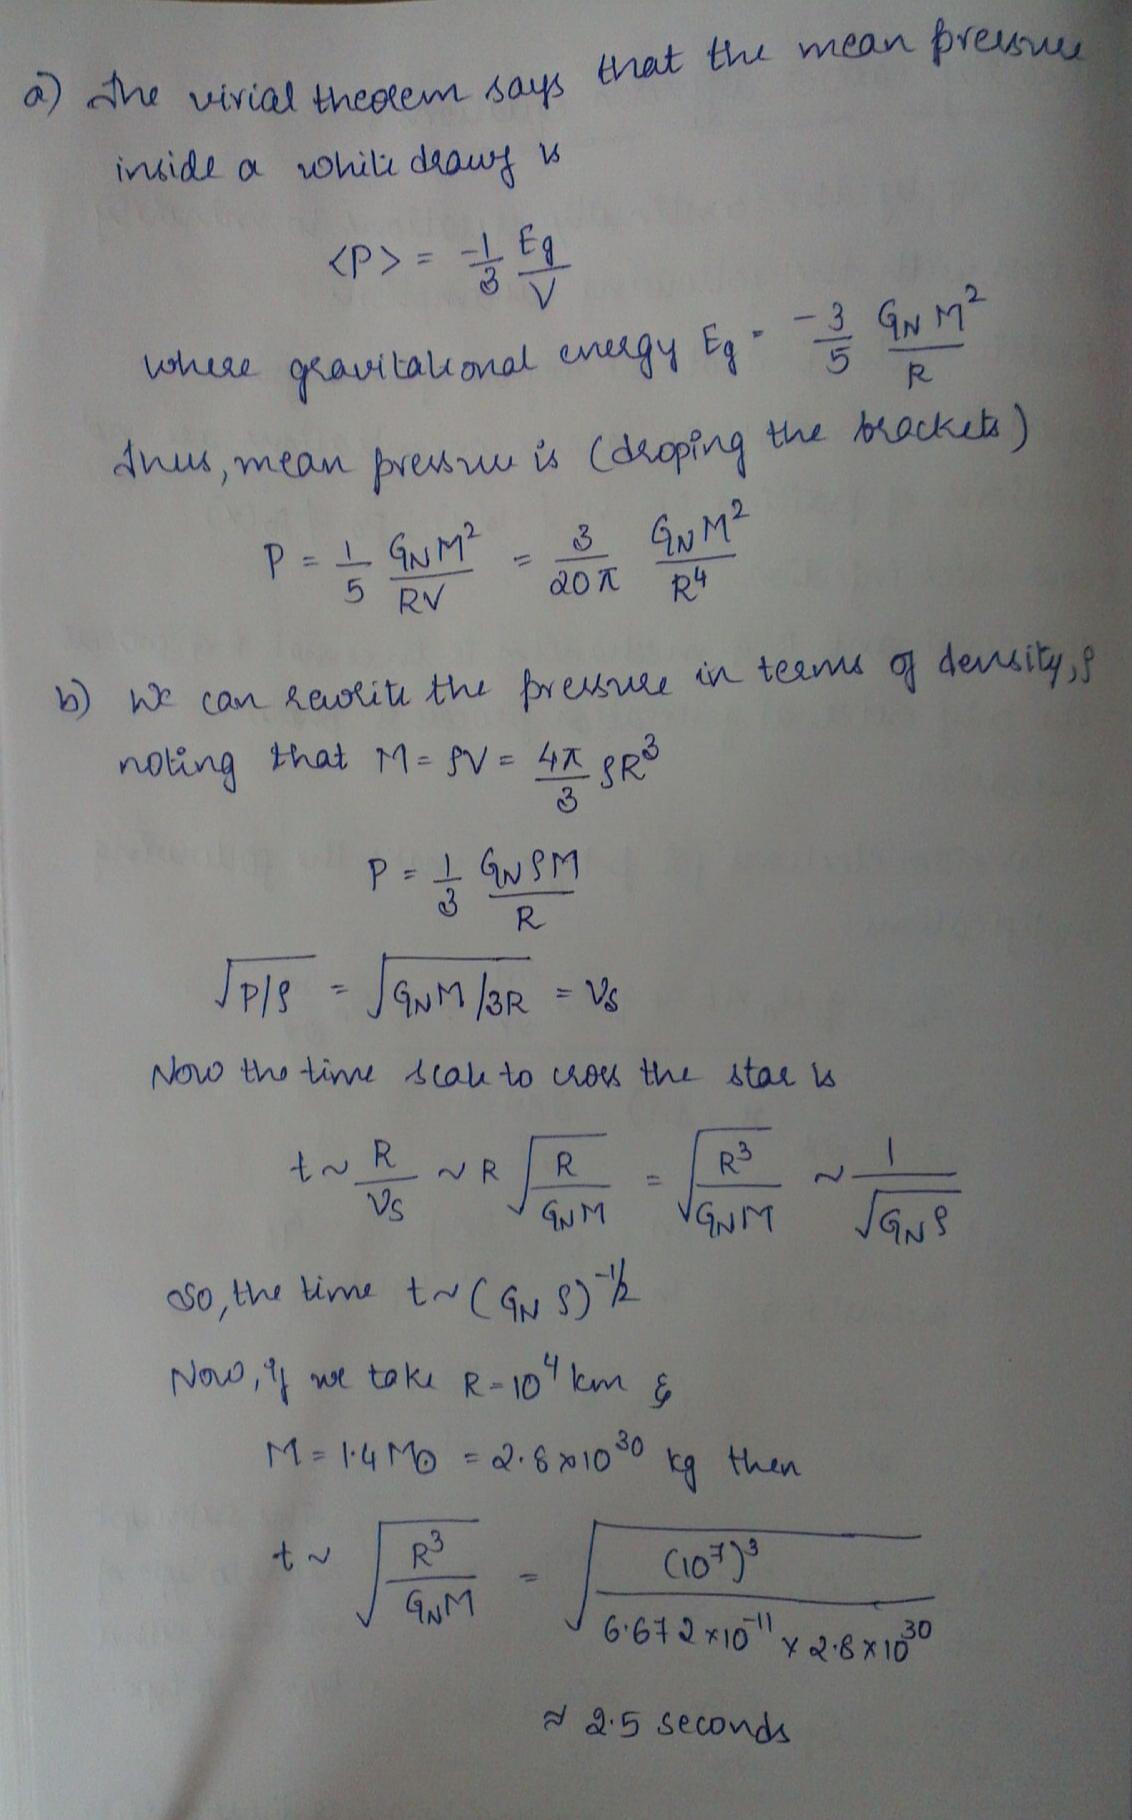 a) The virial theorem says that the mean pressure
inside a white drawf is
<P> = -1/3 Eg/V
where gravitational energy Eg = -3/5 G_N M²/R
Thus, mean pressure is (droping the brackets)
P = 1/5 G_N M²/RV = 3/20π G_N M²/R⁴
b) We can rewrite the pressure in terms of density, ρ
noting that M = ρV = 4π/3 ρR³
P = 1/3 G_N ρM/R
√(P/ρ) = √(G_N M/3R) = Vs
Now the time scale to cross the star is
t ~ R/Vs ~ R √(R/G_N M) = √(R³/G_N M) ~ 1/√(G_N ρ)
So, the time t ~ (G_N ρ)^-1/2
Now, if we take R = 10⁴ km &
M = 1.4 M⊙ = 2.8 × 10³⁰ kg then
t ~ √(R³/G_N M) = √((10⁷)³/6.672 × 10⁻¹¹ × 2.8 × 10³⁰)
≈ 2.5 seconds